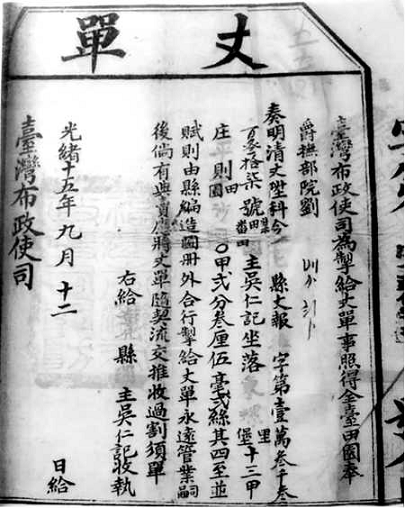 丈單
臺灣布政使司為掣給丈單事照得全臺田園奉
爵撫部院劉
奏明清丈陞科今 縣丈報 字第壹萬叁千叁
百 拾柒號 主吳仁記坐落 里堡十三甲
庄 則田園 〇甲貳分叁厘伍毫貳絲其四至並
賦則由縣編造圖册外合行掣給丈單永遠管業嗣
後倘有典賣應將丈單隨契流交推收過割須單
右給 縣 主吳仁記收執
光緒十五年九月十二 日給
臺灣布政使司